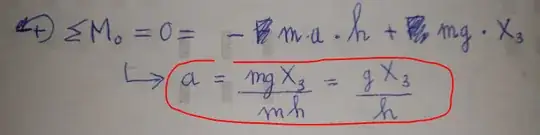 + ΣM₀ = 0 = - m·a·h + mg·X₃
a = mgX₃/mh = gX₃/h